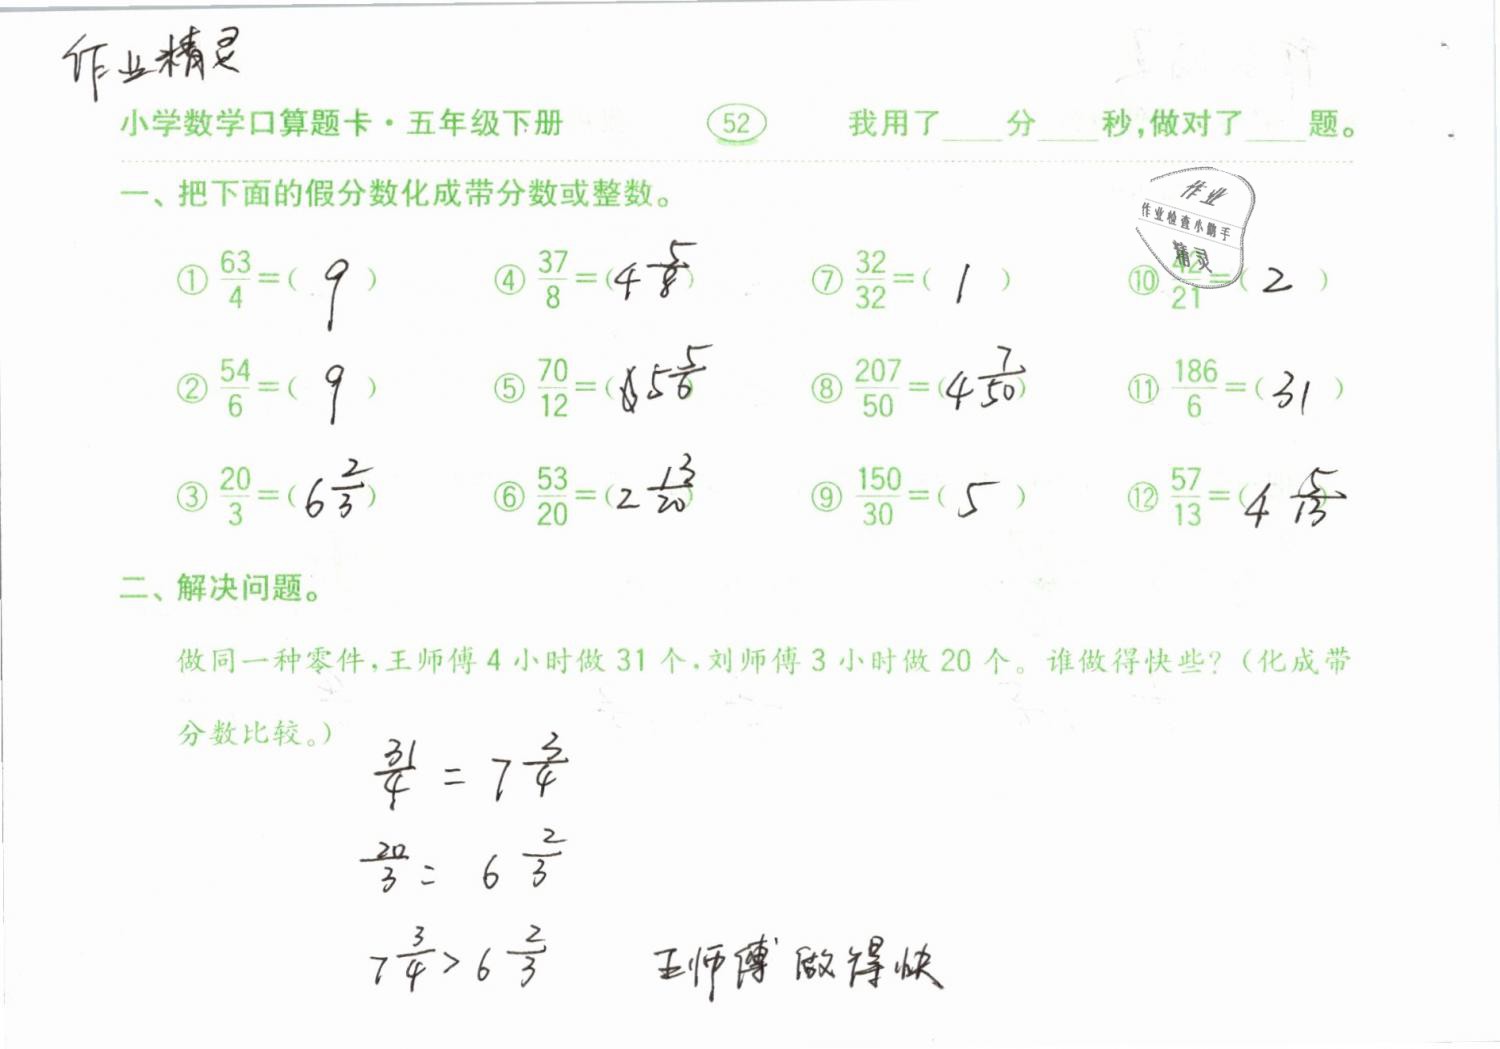 作业精灵
小学数学口算题卡·五年级下册 52 我用了____分____秒,做对了____题。
一、把下面的假分数化成带分数或整数。
作业
作业检查小助手
精灵
① 63/4=( 9 ) ④ 37/8=( 4 5/8 ) ⑦ 32/32=( 1 ) ⑩ 42/21=( 2 )
② 54/6=( 9 ) ⑤ 70/12=( 5 5/6 ) ⑧ 207/50=( 4 7/50 ) ⑪ 186/6=( 31 )
③ 20/3=( 6 2/3 ) ⑥ 53/20=( 2 13/20 ) ⑨ 150/30=( 5 ) ⑫ 57/13=( 4 5/13 )
二、解决问题。
做同一种零件,王师傅 4 小时做 31 个,刘师傅 3 小时做 20 个。谁做得快些?(化成带
分数比较。)
31/4 = 7 3/4
20/3 = 6 2/3
7 3/4 > 6 2/3 王师傅做得快